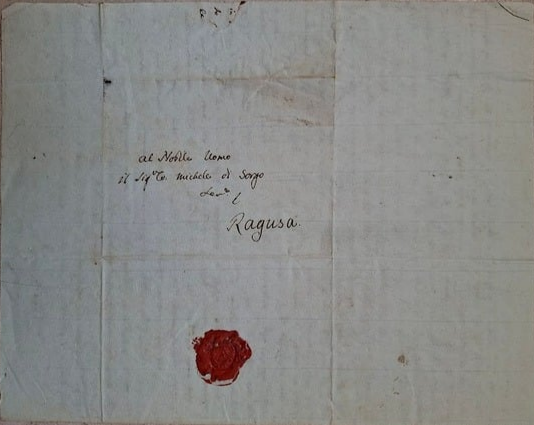 al Nobile Uomo
il Sigr Co. Michele di Sorgo
Ragusa.